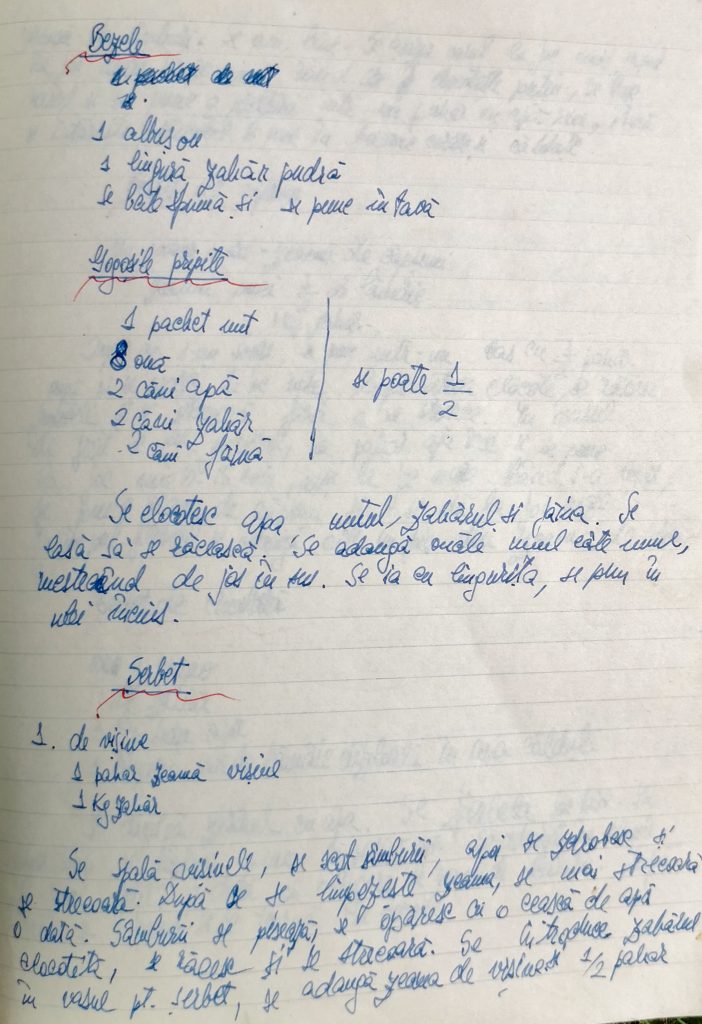 Bezele
1 albuș ou
1 lingură zahăr pudră
se bate spumă și se pune în tavă
Gogoșile pripite
1 pachet unt
8 ouă
2 căni apă
2 căni zahăr
2 căni făină
se poate 1/2
Se clocotesc apa untul, zahărul și făina. Se
lasă să se răcească. Se adaugă ouăle unul câte unul,
mestecând de jos în sus. Se ia cu lingurița, se pun în
ulei încins.
Șerbet
1. de vișine
1 pahar zeamă vișine
1 Kg zahăr
Se spală vișinele, se scot sâmburii, apoi se zdrobesc și
se strecoară. După ce se limpezește zeama, se mai strecoară
o dată. Sâmburii se pisează, se opăresc cu o ceașcă de apă
clocotită, se răcesc și se strecoară. Se introduce zahărul
în vasul pt. șerbet, se adaugă zeama de vișine 1/2 pahar